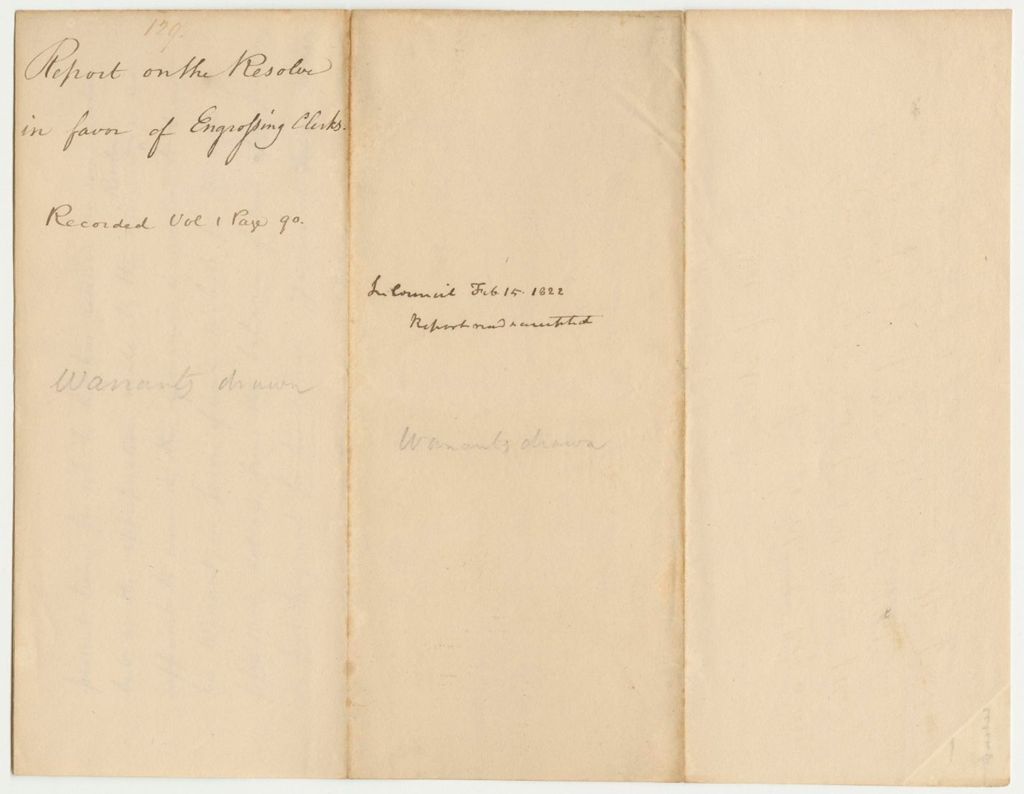 129.
Report on the Resolve
in favor of Engrossing Clerks.
Recorded Vol 1 Page 90.
Warrants drawn
In Council Feb 15. 1822
Report read & accepted
Warrants drawn